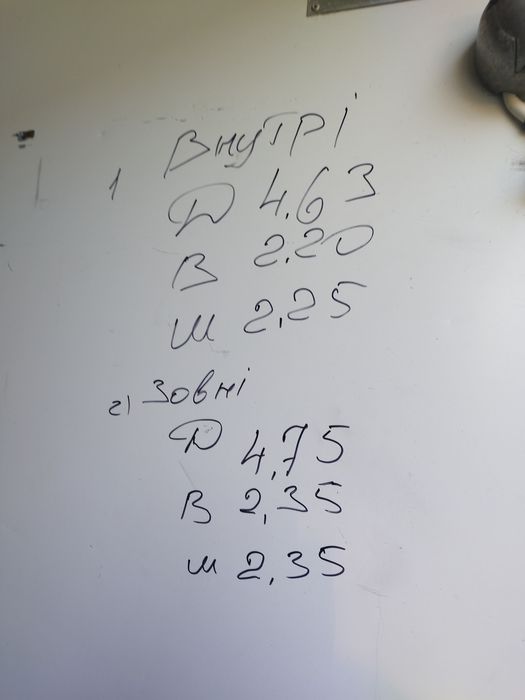 1 Внутрі
Д 4.63
В 2.20
Ш 2,25
2) Зовні
Д 4,75
В 2,35
Ш 2,35